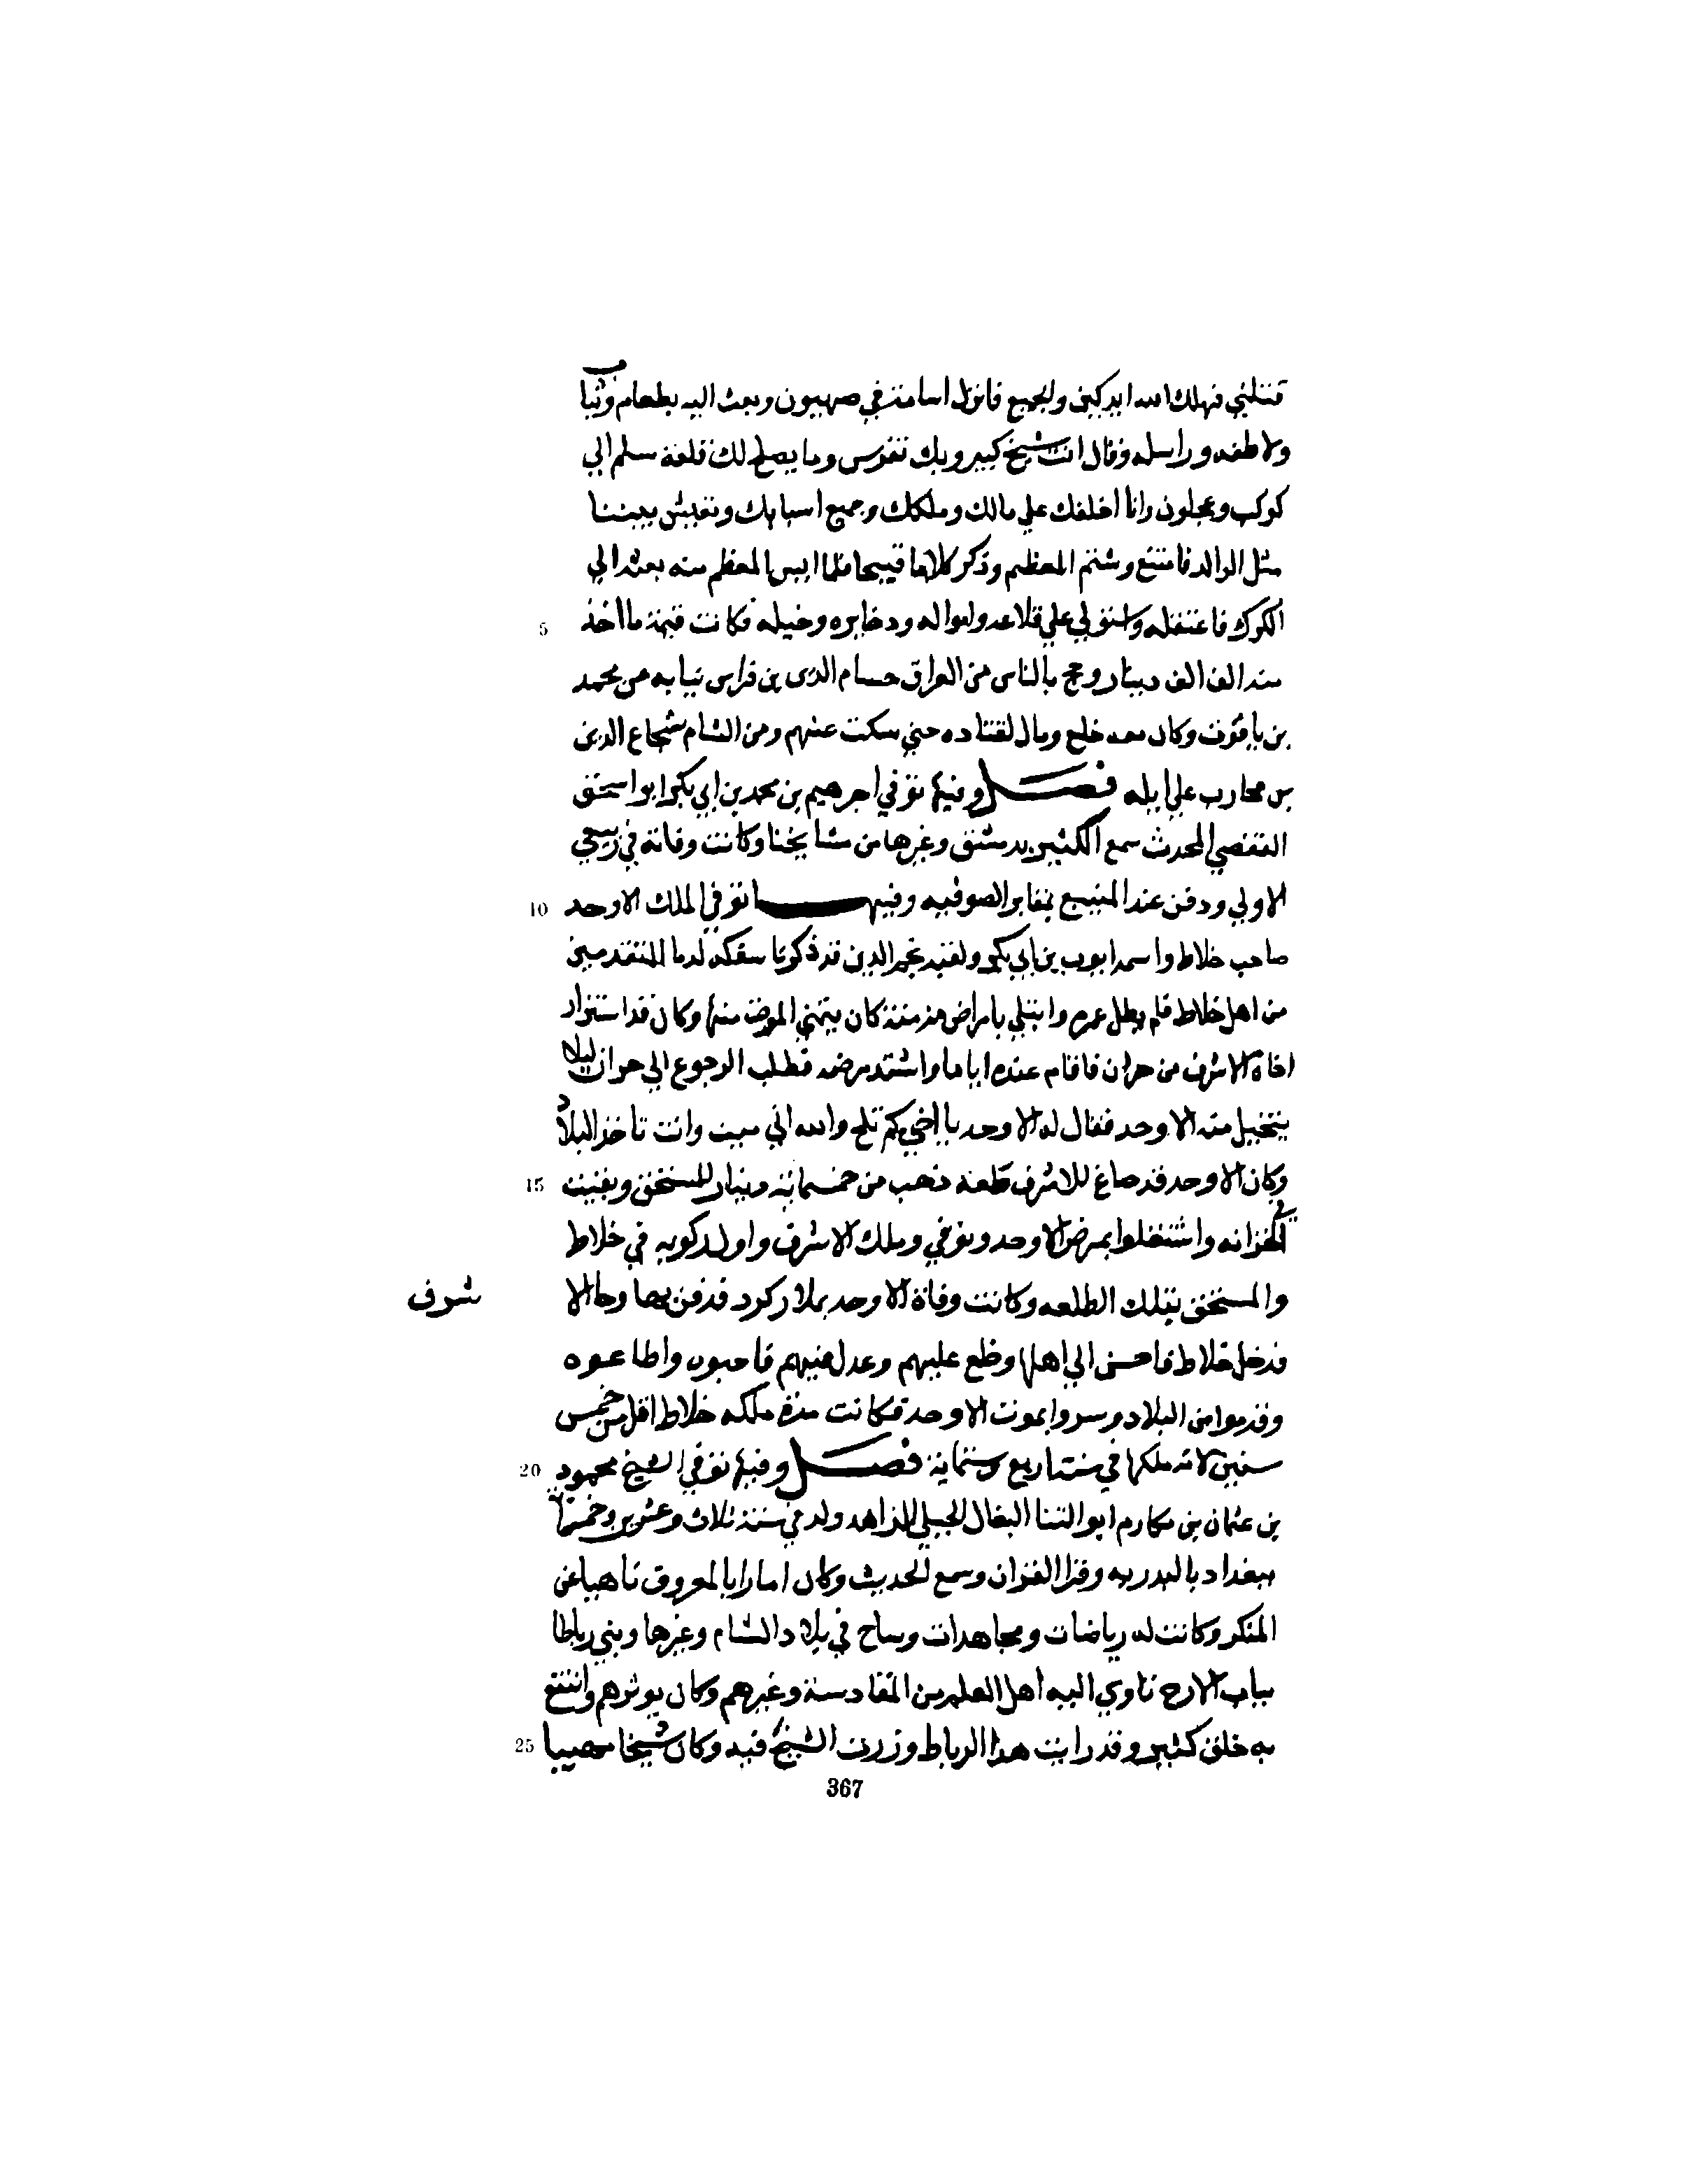 تقتلني فهلك الله ابدركني والجميع فانزل اسامة في صهيون وبعث اليه بطعام وثياب
ولاطفه وراسله وقال انت شيخ كبير وبك نقرس وما يصلح لك قلعة سلم الي
كوكب وعجلون وانا احلفك علي مالك وملكك وجميع اسبابك وتعيش بيننا
مثل الوالد فامتنع وشتم المعظم وذكر كلاما قبيحا فلما ايس المعظم منه بعثه الي
الكرك فاعتقله واستولي علي قلاعه وامواله وذخايره وخيله فكانت قيمة ما اخذ 5
منه الف الف دينار وحج بالناس من العراق حسام الدين بن فراس نيابه من محمد
بن ياقوت وكان معه خلع ومال لقتاده حتي سكت عنهم ومن الشام شجاع الدين
بن محارب علي ايله فصل وفيها توفي ابرهيم بن محمد بن ابي بكر ابو اسحق
القفصي المحدث سمع الكثير بدمشق وغيرها من مشايخنا وكانت وفاته في ربيع
الاولي ودفن عند المنيبع بمقابر الصوفيه وفيها توفي الملك الاوحد 10
صاحب خلاط واسمه ايوب بن ابي بكر ولقبه نجم الدين قد ذكرنا سفكه لدما المتقدمين
من اهل خلاط فلم يطل عمره وابتلي بامراض مزمنة كان يتمني الموت منها وكان قد استزار
اخاه الاشرف من حران فاقام عنده اياما واشتد مرضه فطلب الرجوع الي حران ليلا
يتخيل منه الاوحد فقال له الاوحد يا اخي كم تلح والله اني ميت وانت تاخذ البلاد
وكان الاوحد قد صاغ للاشرف طلعه ذهب من خمسماية دينار للسنجق وبقيت 15
في الخزانه واشتغلوا بمرض الاوحد وتوفي وملك الاشرف واول ركوبه في خلاط
والسنجق بتلك الطلعه وكانت وفاة الاوحد بملازكرد فدفن بها وجا الاشرف
فدخل خلاط فاحسن الي اهلها وخلع عليهم وعدل فيهم فاحبوه واطاعوه
وقدموا من البلاد وسروا بموت الاوحد فكانت مدة ملكه خلاط اقل من خمس
سنين لانه ملكها في سنة اربع وستماية فصل وفيها توفي الشيخ محمود 20
بن عثمان بن مكارم ابو الثنا البقال الحنبلي الزاهد ولد في سنة ثلاث وعشرين وخمسماية
ببغداد بالبدريه وقرا القران وسمع الحديث وكان امارا بالمعروف ناهيا عن
المنكر وكانت له رياضات ومجاهدات وساح في بلاد الشام وغيرها وبني رباطا
بباب الازج تاوي اليه اهل العلم من المقادسة وغيرهم وكان يوثرهم وانتفع
به خلق كثير وقد رايت هذا الرباط وزرت الشيخ فيه وكان شيخا مهيبا 25
367